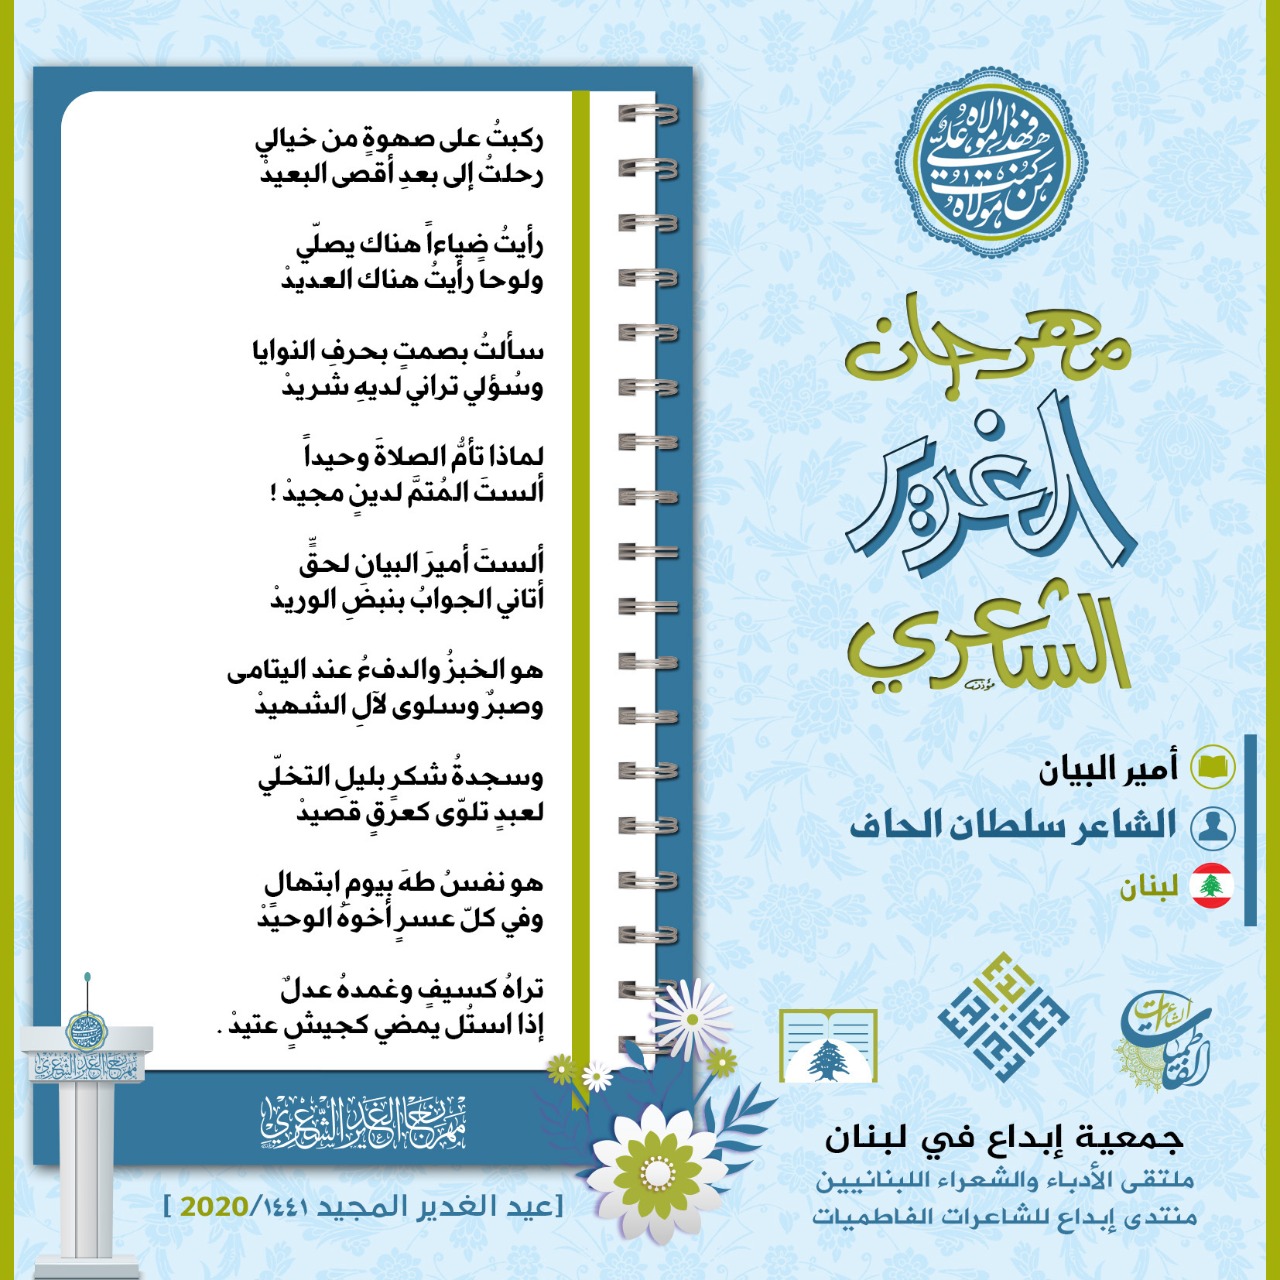 من كنت مولاه
فهذا علي مولاه
مهرجان
الغدير
الشاعري
أمير البيان
الشاعر سلطان الحاف
لبنان
ركبتُ على صهوةٍ من خيالي
رحلتُ إلى بعدِ أقصى البعيدْ
رأيتُ ضياءاً هناك يصلّي
ولوحا رأيتُ هناك العديدْ
سألتُ بصمتٍ بحرفِ النوايا
وسُؤلي تراني لديهِ شريدْ
لماذا تأمُّ الصلاةَ وحيداً
ألستَ المُتمَّ لدينٍ مجيدْ !
ألستَ أميرَ البيانِ لحقٍّ
أتاني الجوابُ بنبضِ الوريدْ
هو الخبزُ والدفءُ عند اليتامى
وصبرٌ وسلوى لآلِ الشهيدْ
وسجدةُ شكرٍ بليلِ التخلّي
لعبدٍ تلوّى كعرقٍ قصيدْ
هو نفسُ طهَ بيومِ ابتهالٍ
وفي كلّ عسرٍ أخوهُ الوحيدْ
تراهُ كسيفٍ وغمدهُ عدلٌ
إذا استُل يمضي كجيشٍ عتيدْ .
مهرجان الغدير الشعري
[عيد الغدير المجيد ١٤٤١/2020 ]
إبداع
الشاعرات
الفاطميات
جمعية إبداع في لبنان
ملتقى الأدباء والشعراء اللبنانيين
منتدى إبداع للشاعرات الفاطميات